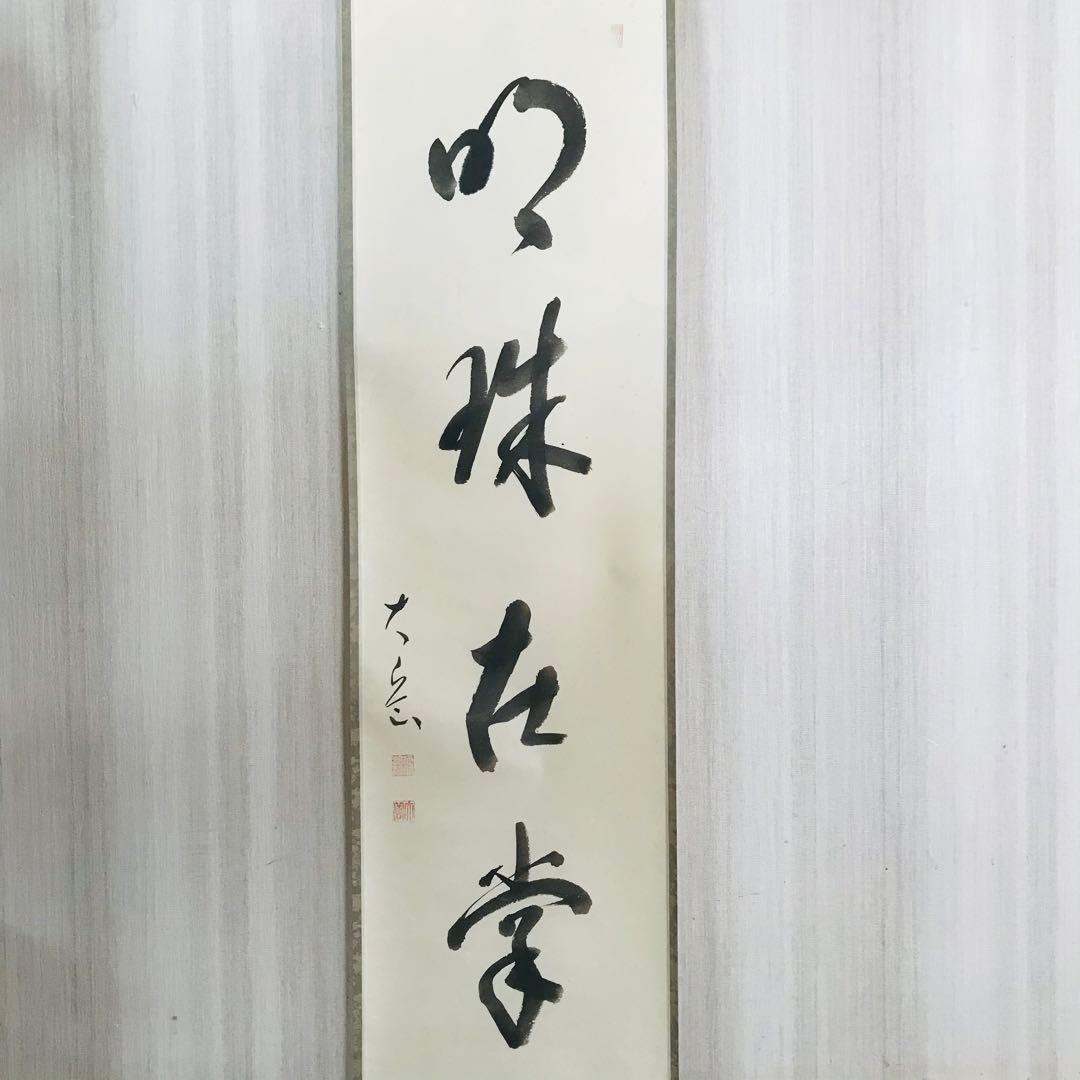 明珠在掌
大岳